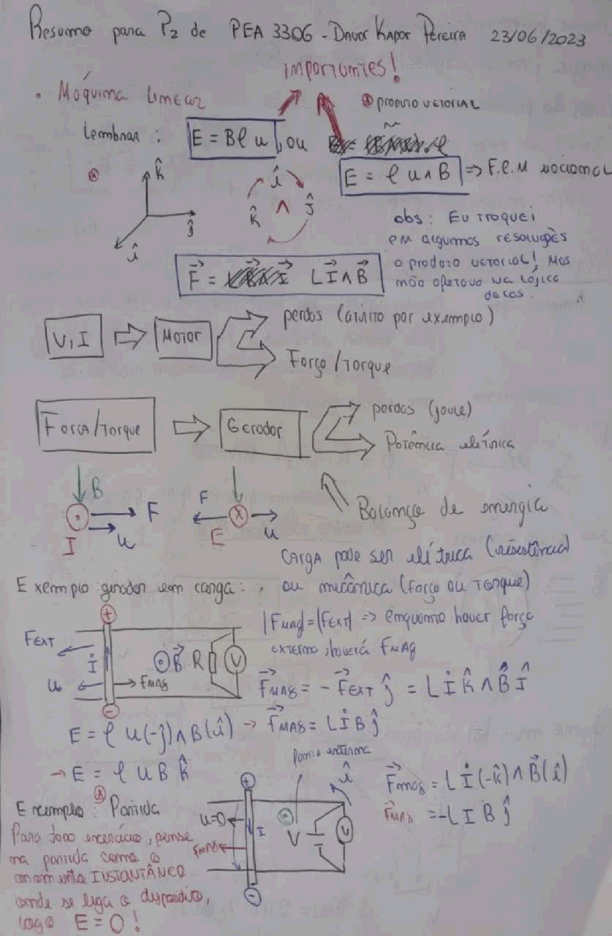 Resumo para P2 de PEA 3306 - Davor Kapor Pereira 23/06/2023
Importantes!
• Máquina linear
⊗ produto vetorial
Lembrar: E = Bℓu, ou
E = ℓ u ∧ B ⇒ F.E.M mocional
k̂
ĵ
î
î
k̂ ∧ ĵ
obs: Eu troquei
em algumas resoluções
o produto vetorial! Mas
não afetava na lógica
delas.
F⃗ = L I⃗ ∧ B⃗
V, I ⇒ Motor
perdas (atrito por exemplo)
Força/Torque
Força/Torque ⇒ Gerador
perdas (joule)
Potência elétrica
Balanço de energia
B
I
F
u
F
E
u
Carga pode ser elétrica (resistência)
ou mecânica (força ou Torque)
Exemplo gerador em carga:
|Fmag| = |Fext| ⇒ enquanto houver força
externa, haverá Fmag
+
FEXT
u
İ
Fmag
⊙ B⃗
R
V
-
F⃗mag = - F⃗ext ĵ = L İ k̂ ∧ B⃗ î
E = ℓ u(-ĵ) ∧ B(î) → F⃗mag = L İ B ĵ
→ E = ℓ u B k̂
Exemplo: Partida
Para todo exercício, pense
na partida como o
momento INSTANTÂNEO
onde se liga o dispositivo,
logo E = 0!
+
u=0
Fmag
I
V
î
V
-
F⃗mag = L İ (-k̂) ∧ B⃗(î)
F⃗mag = -L I B ĵ